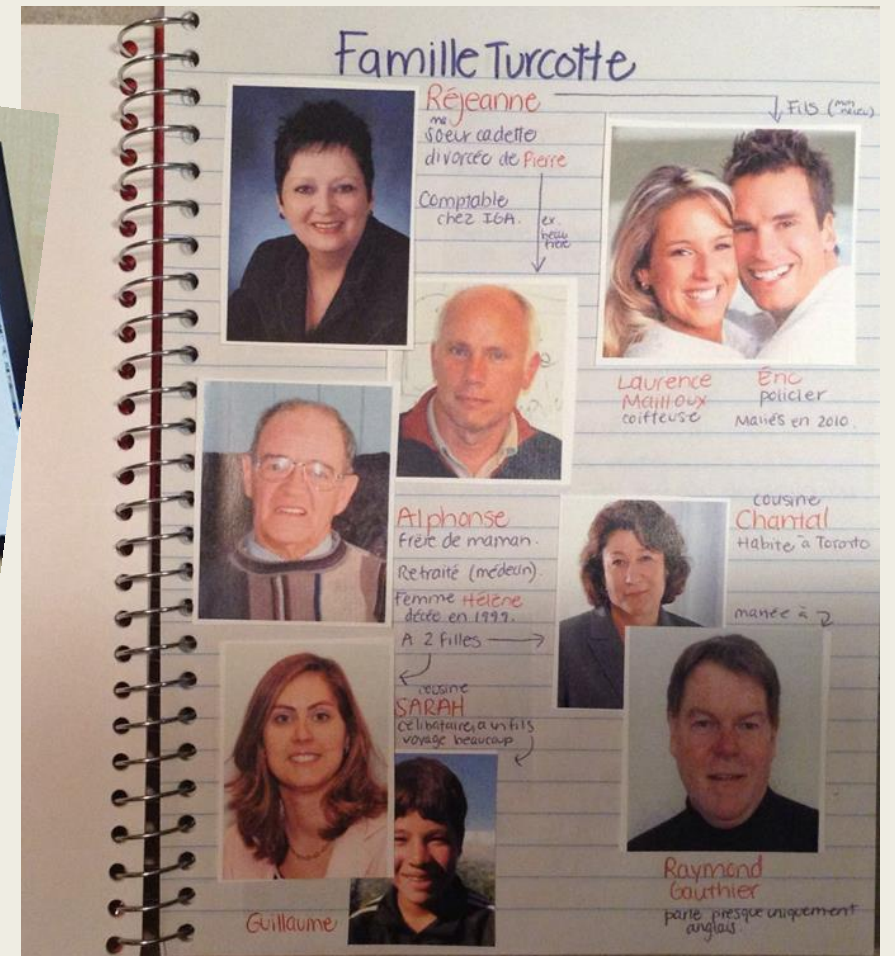 Famille Turcotte
Réjeanne
ma
soeur cadette
divorcée de Pierre
Comptable
chez IGA.
ex
beau
frère
Fils (mon
neveu)
Laurence
Mailloux
coiffeuse
Éric
policier
Mariés en 2010.
Alphonse
Frère de maman.
Retraité (médecin).
Femme Hélène
décée en 1999.
A 2 filles
cousine
Chantal
Habite à Toronto
mariée à
cousine
SARAH
célibataire, a un fils
voyage beaucoup
Guillaume
Raymond
Gauthier
parle presque uniquement
anglais.